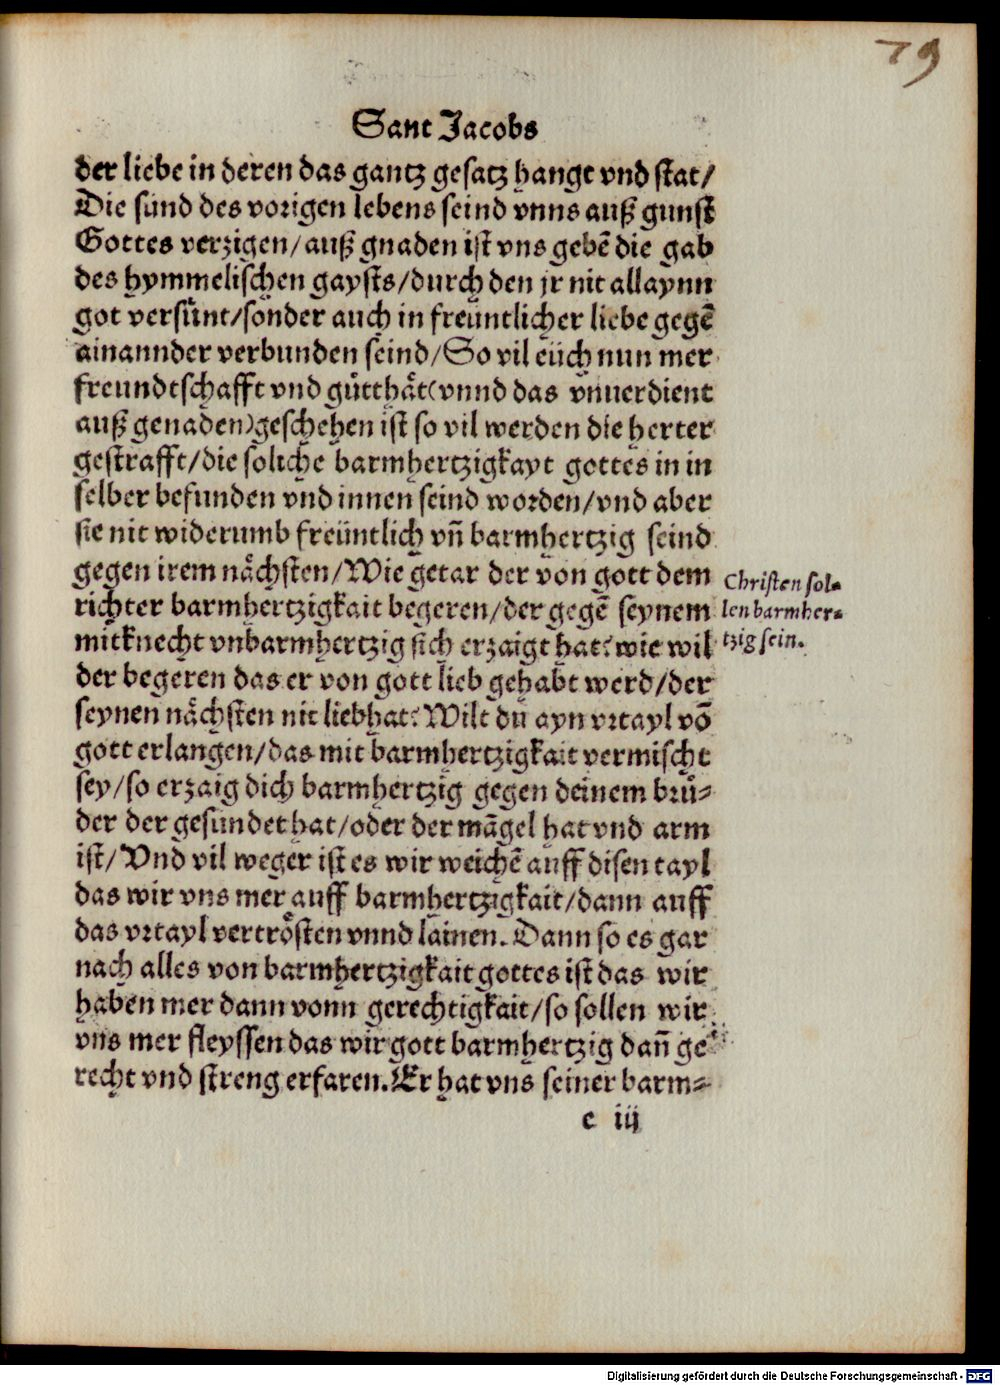 79
Sant Jacobs
der liebe in deren das gantz gesatz hangt vnd stat/
Die sünd des vorigen lebens seind vnns auß gunst
Gottes verzigen/auß gnaden ist vns gebē die gab
des hymmelischen gaysts/durch den jr nit allaynn
got versünt/sonder auch in freüntlicher liebe gegē
ainannder verbunden seind/So vil eüch nun mer
freundtschafft vnd gůtthåt(vnnd das vnuerdient
auß genaden)geschehen ist so vil werden die herter
gestrafft/die soliche barmhertzigkayt gottes in in
selber befunden vnd innen seind worden/vnd aber
sie nit widerumb freüntlich vn̄ barmhertzig seind
gegen irem nåchsten/Wie getar der von gott dem
richter barmhertzigkait begeren/der gegē seynem
mitknecht vnbarmhertzig sich erzaigt hat? wie wil
der begeren das er von gott lieb gehabt werd/der
seynen nåchsten nit liebhat? Wilt du ayn vrtayl vō
gott erlangen/das mit barmhertzigkait vermischt
sey/so erzaig dich barmhertzig gegen deinem brů-
der der gesündet hat/oder der mågel hat vnd arm
ist/Vnd vil weger ist es wir weichē auff disen tayl
das wir vns mer auff barmhertzigkait/dann auff
das vrtayl vertrösten vnnd lainen. Dann so es gar
nach alles von barmhertzigkait gottes ist das wir
haben mer dann vonn gerechtigkait/so sollen wir
vns mer fleyssen das wir gott barmhertzig dan̄ ge
recht vnd streng erfaren. Er hat vns seiner barm-
Christen sol-
len barmher-
tzig sein.
e iij
Digitalisierung gefördert durch die Deutsche Forschungsgemeinschaft - DFG